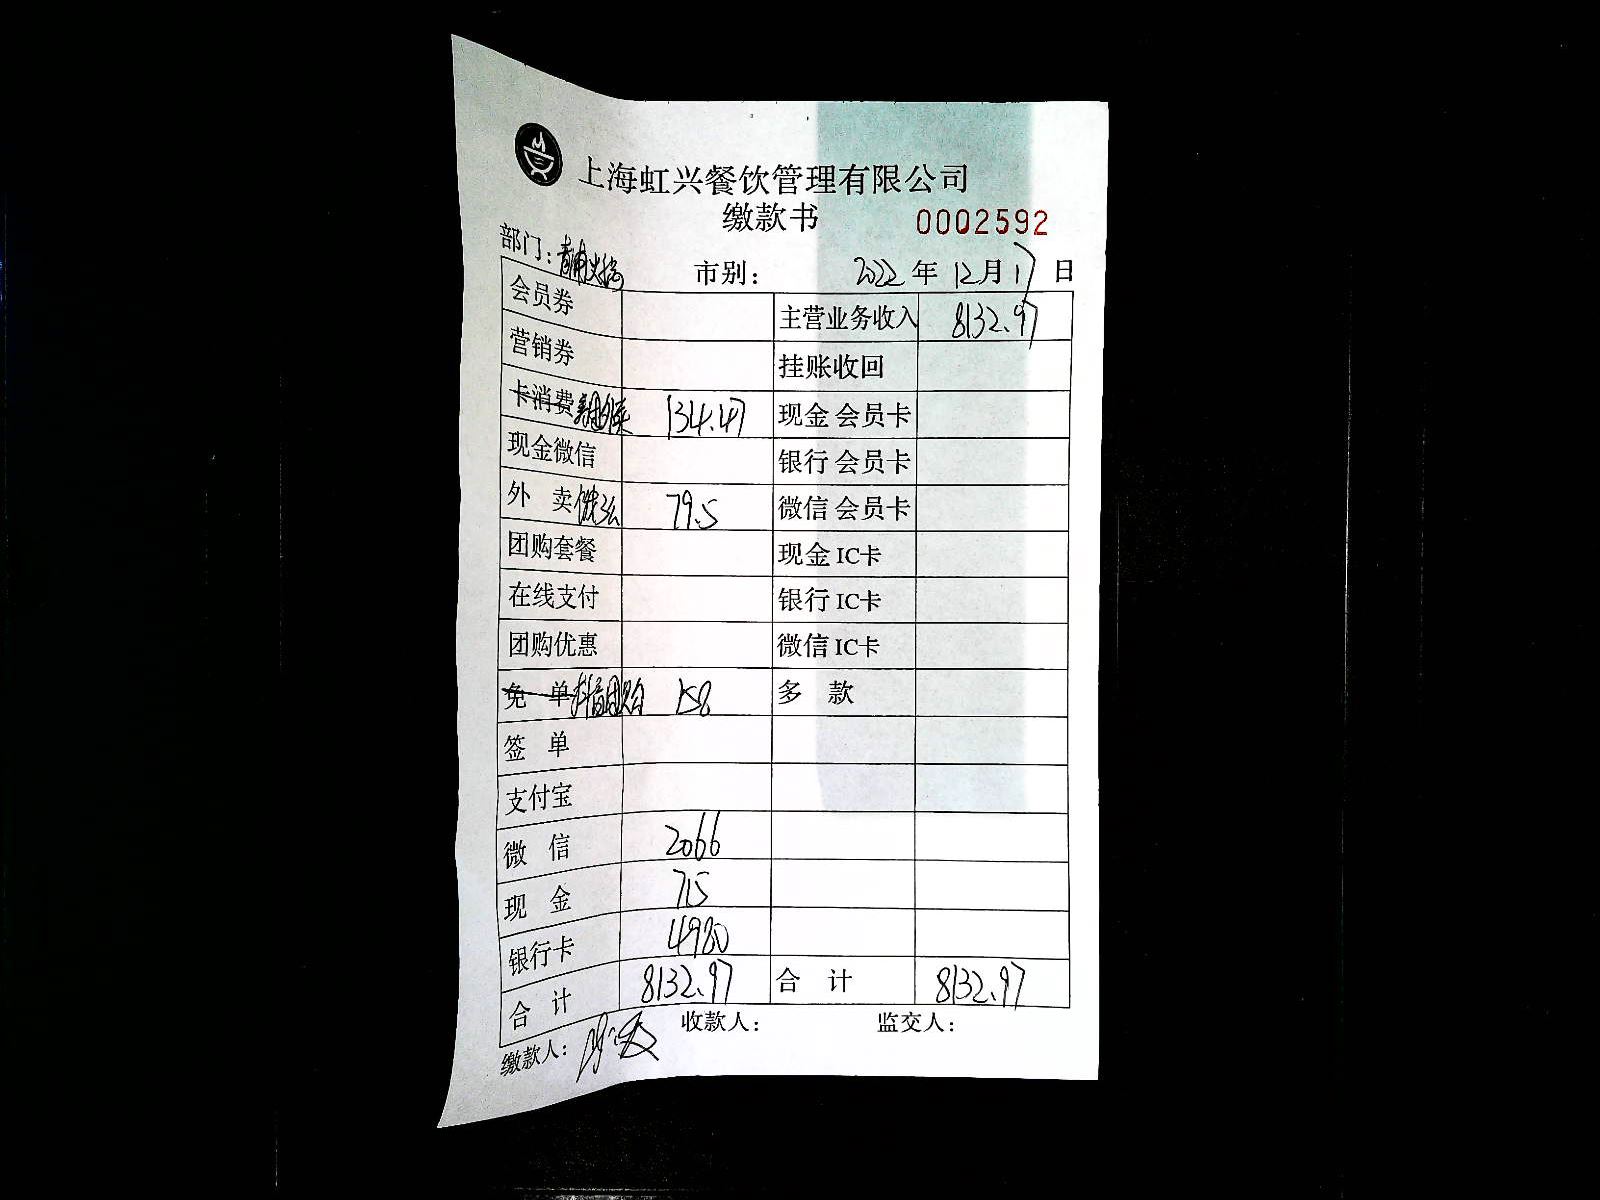 上海虹兴餐饮管理有限公司
缴款书 0002592
部门：青浦火锅 市别： 2022 年 12 月 17 日
会员券 主营业务收入 8132.97
营销券 挂账收回
卡消费 美团外卖 134.47 现金 会员卡
现金微信 银行 会员卡
外 卖 饿了么 79.5 微信 会员卡
团购套餐 现金 IC卡
在线支付 银行 IC卡
团购优惠 微信 IC卡
免 单 抖音团购 158 多 款
签 单
支付宝
微 信 2066
现 金 715
银行卡 4980
合 计 8132.97 合 计 8132.97
缴款人： 收款人： 监交人：